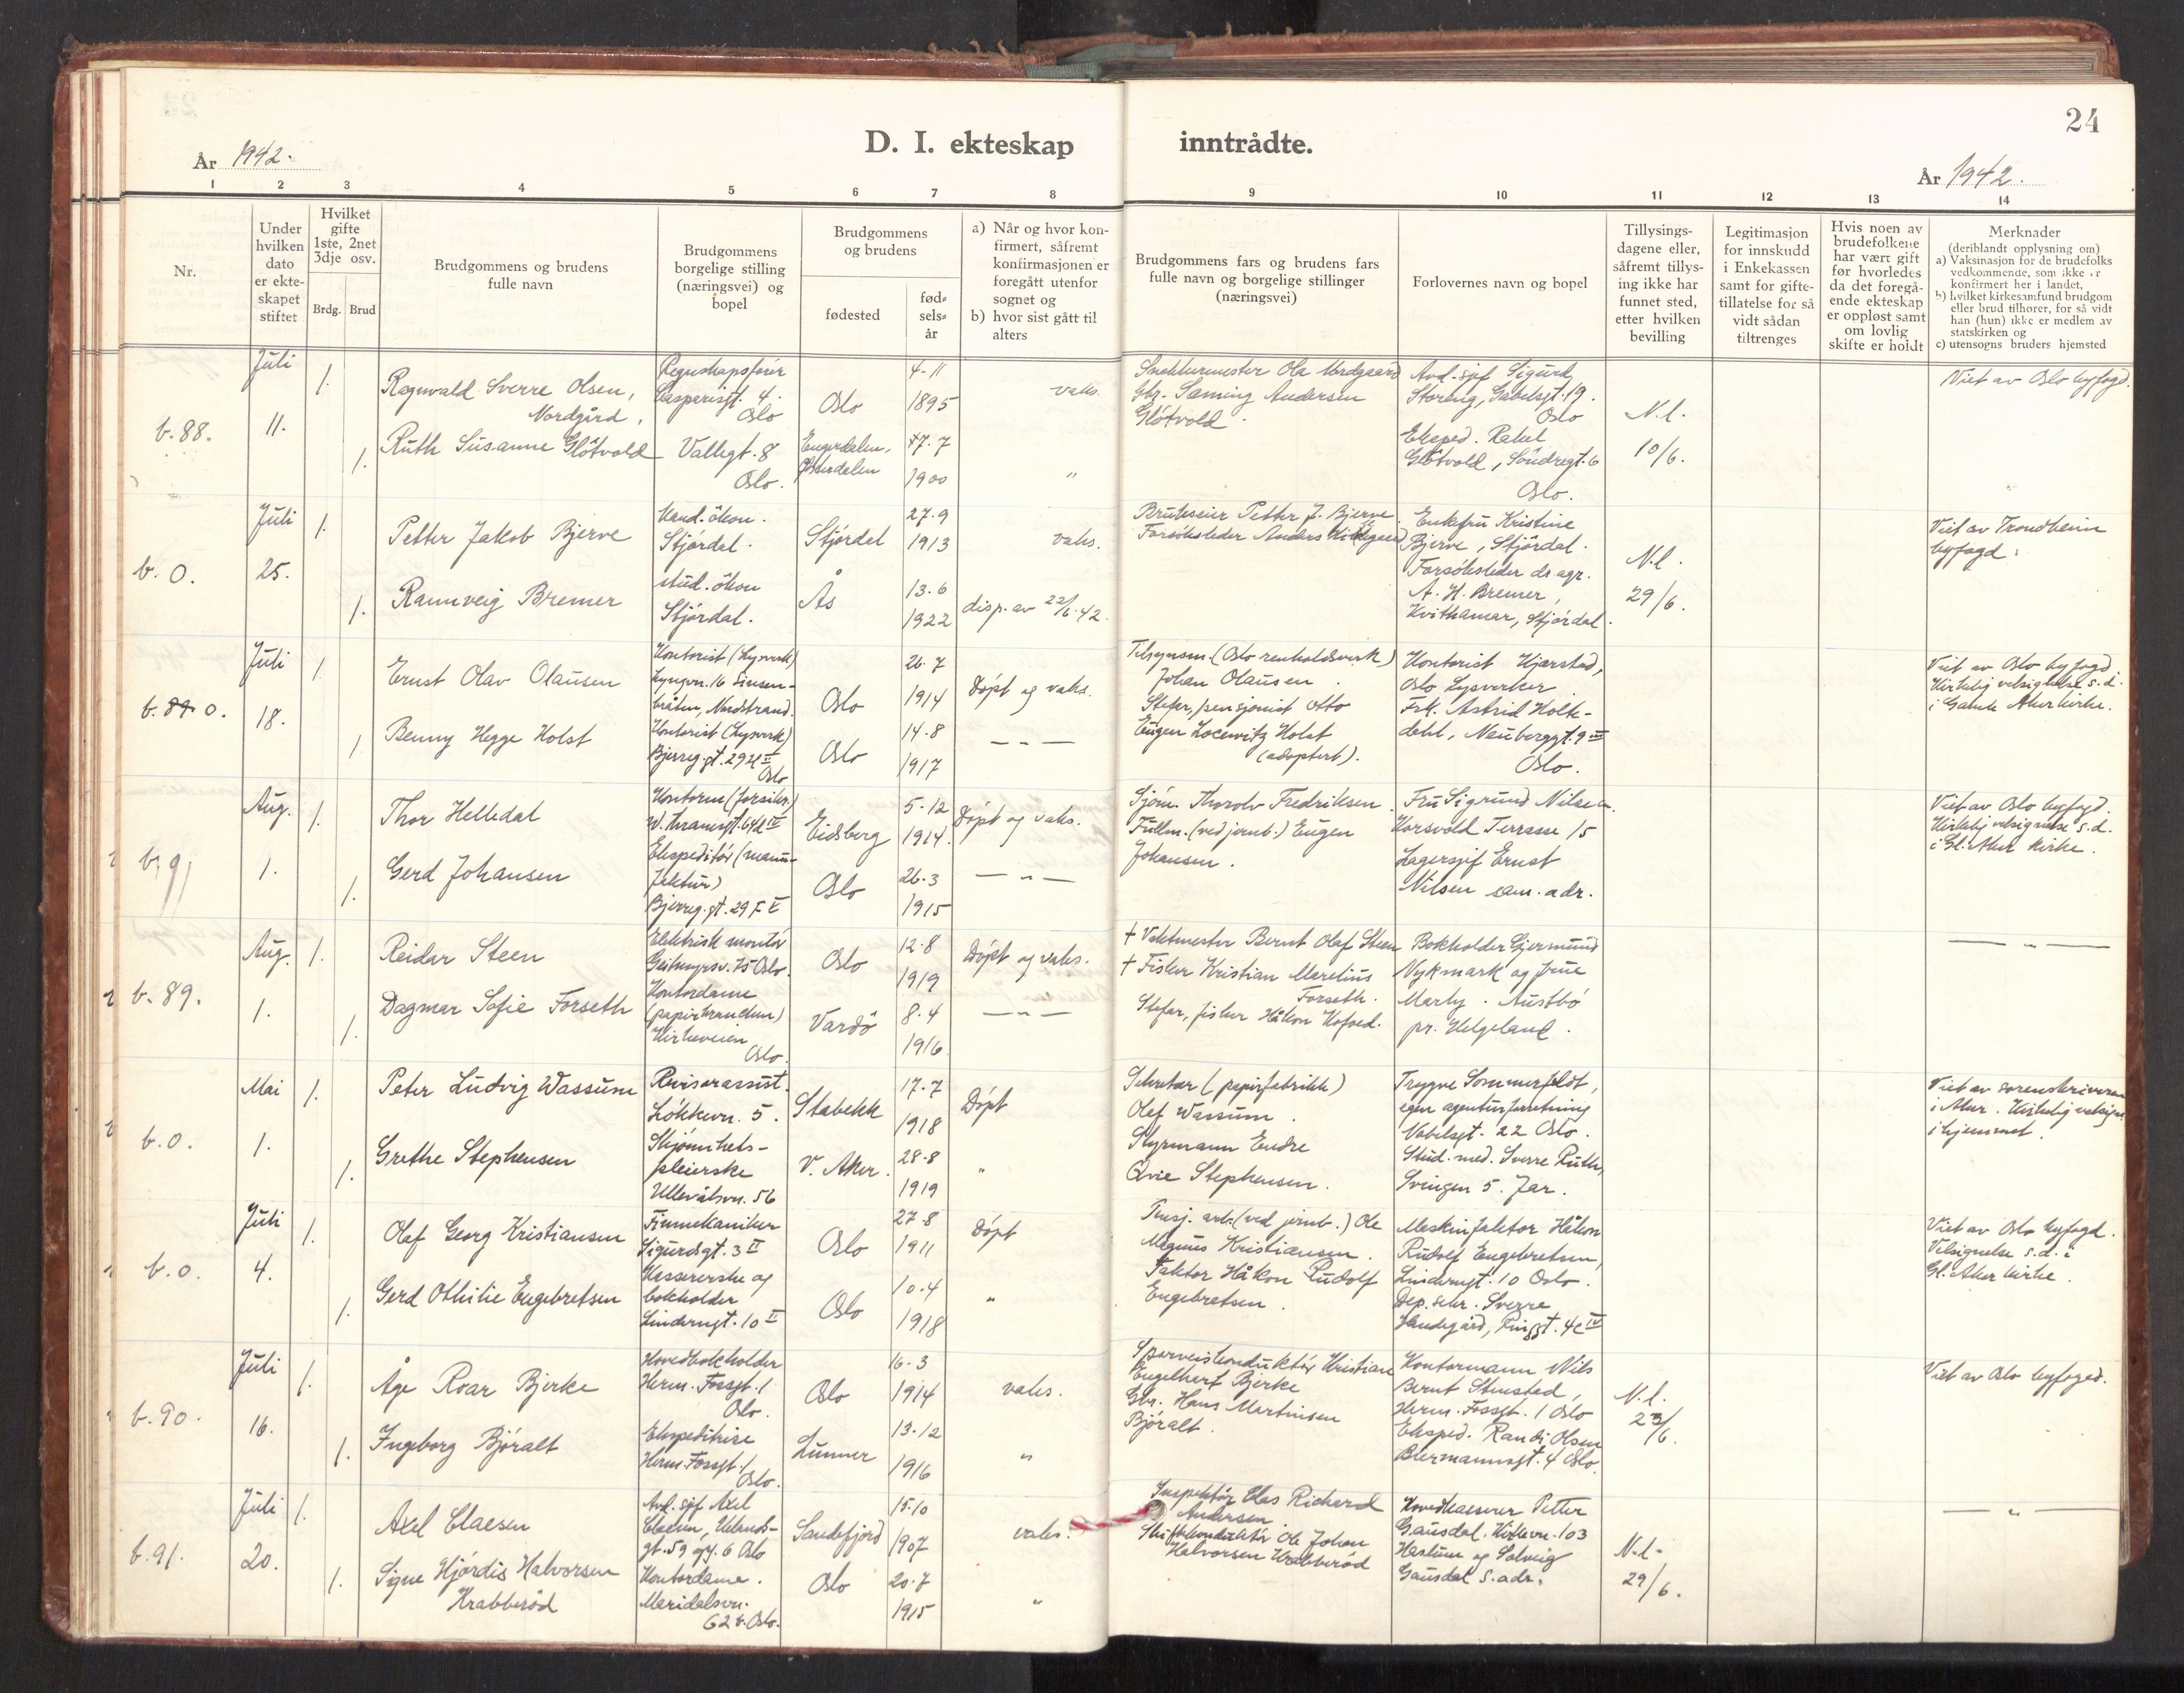 24
D. I. ekteskap inntrådte.
År 1942.
År 1942.
1 2 3 4 5 6 7 8 9 10 11 12 13 14
Nr.
Under hvilken dato er ekteskapet stiftet
Hvilket gifte 1ste, 2net 3dje osv.
Brdg. Brud
Brudgommens og brudens fulle navn
Brudgommens borgelige stilling (næringsvei) og bopel
Brudgommens og brudens
fødested
fødselsår
a) Når og hvor konfirmert, såfremt konfirmasjonen er foregått utenfor sognet og
b) hvor sist gått til alters
Brudgommens fars og brudens fars fulle navn og borgelige stillinger (næringsvei)
Forlovernes navn og bopel
Tillysingsdagene eller, såfremt tillysing ikke har funnet sted, etter hvilken bevilling
Legitimasjon for innskudd i Enkekassen samt for giftetillatelse for så vidt sådan tiltrenges
Hvis noen av brudefolkene har vært gift før hvorledes da det foregående ekteskap er oppløst samt om lovlig skifte er holdt
Merknader
(deriblandt opplysning om)
a) Vaksinasjon for de brudefolks vedkommende, som ikke er konfirmert her i landet,
b) hvilket kirkesamfund brudgom eller brud tilhører, for så vidt han (hun) ikke er medlem av statskirken og
c) utensogns bruders hjemsted
b. 88.
Juli
11.
1.
Ragnvald Sverre Olsen,
Nordgård,
Regnskapsfører
Casparisgt. 4.
Oslo
Oslo
4-11
1895
vaks.
Snekkermester Ole Nordgaard
Gbr. Saming Andersen
Glötvold.
Avd-sjef Sigurd
Storeng, Gabelsgt. 19.
Oslo
N.l.
10/6.
Viet av Oslo byfogd.
1.
Ruth Susanne Glötvold
Vallegt. 8
Oslo.
Engerdalen,
Østerdalen
7
1900
"
Eksped. Rakel
Glötvold, Söndregt. 6
Oslo.
b. 0.
Juli
25.
1.
Petter Jakob Bjerve
Kand. ökon.
Stjördal.
Stjördal
27.9
1913
vaks.
Brukseier Petter J. Bjerve
Forsöksleder Anders
Enkefru Kristine
Bjerve, Stjördal.
N.l.
29/6.
Viet av Trondheim
byfogd.
1.
Rannveig Bremer
stud. ökon
Stjördal.
Ås
13.6
1922
disp. av 22/6.42.
Forsöksleder dr. agr.
A. H. Bremer,
Kvithamar, Stjördal.
b. 0.
Juli
18.
1.
Ernst Olav Olausen
Kontorist (Lysverk)
Lyngvn. 16 Simsen-
bråten, Nordstrand.
Oslo
26.7
1914
Döpt og vaks.
Tilsynsm. (Oslo renholdsverk)
Johan Olausen.
Stefar, pensjonist Otto
Eugen Locenwitz Holst
(adoptert).
Kontorist Hjarstad,
Oslo Lysverker.
Frk. Astrid Holte-
dahl, Neuberggt. 9 III
Oslo.
Viet av Oslo byfogd.
Kirkelig velsignelse s.d.
i Gamle Aker kirke.
1
Benny Hegge Holst
Kontorist (Lysverk)
Bjerreg.gt. 29
Oslo
Oslo
14.8
1917
— " —
b. 91
Aug.
1.
1.
Thor Helledal
Kontorm (forsikr.)
W. Thranesgt. 64
Eidsberg
5-12
1914.
Döpt og vaks.
Sjöm. Thorolv Fredriksen.
Fullm. (ved jernb.) Eugen
Johansen.
Fru Sigrund Nilsen.
Korsvold Terrasse 15
Lagersjef Ernst
Nilsen sam. adr.
Viet av Oslo byfogd.
Kirkelig velsignelse s.d.
i Gl. Aker kirke.
1.
Gerd Johansen
Ekspeditör (manu-
faktur)
Bjerreg.gt. 29 F
Oslo
26.3
1915
— " —
b. 89.
Aug.
1.
1.
Reidar Steen
Elektrisk montör
Geitmyrsv. 75 Oslo.
Oslo
12.8
1919
Döpt og vaks.
+ Vaktmester Bernt Olaf Steen
+ Fisker Kristian Marelius
Forseth.
Stefar, fisker Håkon Kofoed.
Bokholder Gjermund
Nykmark og frue
Marly. Austbö
pr. Helgeland.
— " —
1.
Dagmar Sofie Forseth
Kontordame
(papirbranchen)
Kirkeveien
Oslo.
Vardö
8.4
1916
— " —
b. 0.
Mai
1.
1.
Peter Ludvig Wassum
Revisorassist.
Lökkevn. 5.
Stabekk
17.7
1918
Döpt
Sekretær (papirfabrikk)
Olaf Wassum.
Styrmann Endre
Qvie Stephensen.
Trygve Sommerfeldt,
egen agenturforretning
Gabelsgt. 22 Oslo.
Stud. med. Sverre Ruth,
Svingen 5. Jar.
Viet av sorenskriveren
i Aker. Kirkelig velsign.
i hjemmet.
1.
Grethe Stephensen
Skjönnhets-
pleierske
Ullevålsvn. 56
V. Aker.
28.8
1919
"
b. 0.
Juli
4.
1.
Olaf Georg Kristiansen
Finmekaniker
Sigurdsgt. 3 II
Oslo
27.8
1911
Döpt
Pensj. arb. (ved jernb.) Ole
Magnus Kristiansen.
Faktor Håkon Rudolf
Engebretsen.
Maskinfaktor Håkon
Rudolf Engebretsen,
Linderngt. 10 Oslo.
Dep. sekr. Sverre
Sandegård,
Viet av Oslo byfogd.
Velsignelse s.d. i
Gl. Aker kirke.
1.
Gerd Othilie Engebretsen
Kassererske og
bokholder
Linderngt. 10 II
Oslo
10.4
1918
"
b. 90.
Juli
16.
1.
Åge Roar Bjerke
Hovedbokholder
Herm. Fossgt. 1
Oslo.
Oslo
16.3
1914
vaks.
Sporveiskonduktör Kristian
Engelhart Bjerke
Gbr. Hans Martinsen
Björalt.
Kontormann Nils
Bernt Stensted,
Herm. Fossgt. 1 Oslo
Eksped. Randi Olsen
Biermannsgt. 4 Oslo.
N.l.
23/6.
Viet av Oslo byfoged.
1.
Ingeborg Björalt
Ekspeditrise
Herm. Fossgt. 1
Oslo.
Lunner
13.12
1916
"
b. 91.
Juli
20.
1.
Axel Claesen
Avd. sjef Axel
Claesen, Uelands-
gt. 59 6 Oslo
Sandefjord
15.10
1907
vaks.
Inspektör Clas Richard
Andersen.
Skiftekonduktör Ole Johan
Halvorsen Krabberöd
Hovedkasserer Petter
Gausdal, Kirkevn. 103
Haslum og Solveig
Gausdal s. adr.
N.l.
29/6.
— " —
1.
Signe Hjördis Halvorsen
Krabberöd
Kontordame.
Maridalsvn.
62 Oslo.
Oslo
20.7
1915
"